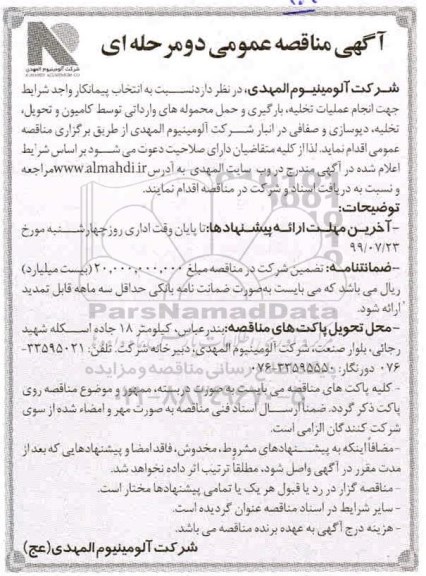 شرکت آلومینیوم المهدی
ALMAHDI ALUMINIUM CO
آگهی مناقصه عمومی دومرحله ای
شرکت آلومینیوم المهدی، در نظر دارد نسبت به انتخاب پیمانکار واجد شرایط
جهت انجام عملیات تخلیه، بارگیری و حمل محموله های وارداتی توسط کامیون و تحویل،
تخلیه، دپوسازی و صفافی در انبار شرکت آلومینیوم المهدی از طریق برگزاری مناقصه
عمومی اقدام نماید. لذا از کلیه متقاضیان دارای صلاحیت دعوت می شود بر اساس شرایط
اعلام شده در آگهی مندرج در وب سایت المهدی به آدرس www.almahdi.ir مراجعه
و نسبت به دریافت اسناد و شرکت در مناقصه اقدام نمایند.
توضیحات:
-آخرین مهلت ارائه پیشنهادها: تا پایان وقت اداری روز چهارشنبه مورخ
۹۹/۰۷/۲۳
--ضمانتنامه: تضمین شرکت در مناقصه مبلغ ۲۰,۰۰۰,۰۰۰,۰۰۰ (بیست میلیارد)
ریال می باشد که می بایست به‌صورت ضمانت نامه بانکی حداقل سه ماهه قابل تمدید
ارائه شود.
-محل تحویل پاکت های مناقصه: بندرعباس، کیلومتر ۱۸ جاده اسکله شهید
رجائی، بلوار صنعت، شرکت آلومینیوم المهدی، دبیرخانه شرکت. تلفن: ۳۳۵۹۵۰۲۱-
۰۷۶ دورنگار: ۳۳۵۹۵۵۵۰-۰۷۶
- کلیه پاکت های مناقصه می بایست به صورت دربسته، ممهور و موضوع مناقصه روی
پاکت ذکر گردد. ضمنا ارسال اسناد فنی مناقصه به صورت مهر و امضاء شده از سوی
شرکت کنندگان الزامی است.
-مضافاً اینکه به پیشنهادهای مشروط، مخدوش، فاقد امضا و پیشنهادهایی که بعد از
مدت مقرر در آگهی واصل شود، مطلقاً ترتیب اثر داده نخواهد شد.
-مناقصه گزار در رد یا قبول هر یک یا تمامی پیشنهادها مختار است.
- سایر شرایط در اسناد مناقصه عنوان گردیده است.
- هزینه درج آگهی به عهده برنده مناقصه می باشد.
شرکت آلومینیوم المهدی (عج)
ParsNamadData